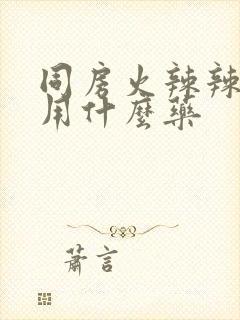 同房火辣辣
用什麼藥
蕭言